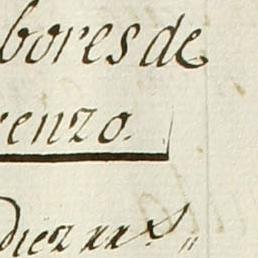 bores de
renzo.
diez xx^s,,